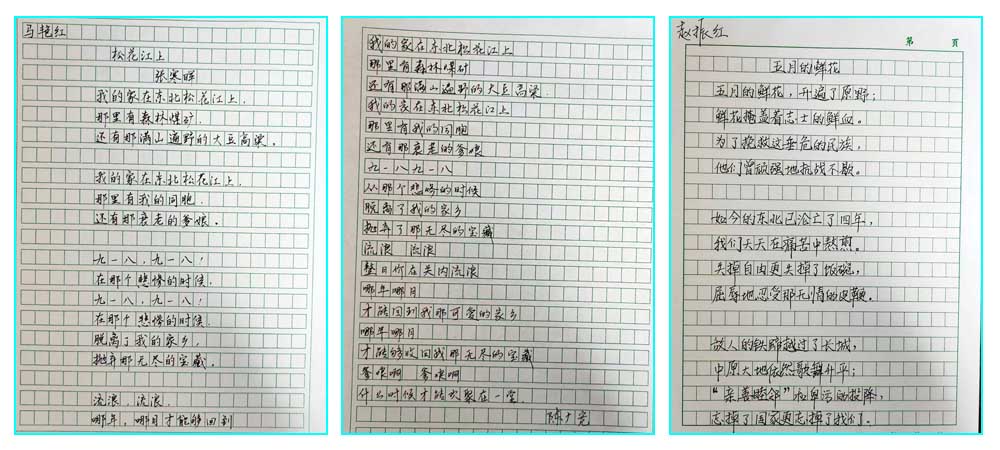 马艳红
松花江上
张寒晖
我的家在东北松花江上.
那里有森林煤矿.
还有那满山遍野的大豆高粱.
我的家在东北松花江上.
那里有我的同胞
还有那衰老的爹娘.
九一八,九一八!
在那个悲惨的时候.
九一八,九一八!
在那个悲惨的时候.
脱离了我的家乡,
抛弃那无尽的宝藏.
流浪,流浪.
哪年,哪月才能够回到
我的家在东北松花江上
那里有森林煤矿
还有那满山遍野的大豆高粱
我的家在东北松花江上
那里有我的同胞
还有那衰老的爹娘
九一八九一八
从那个悲惨的时候
脱离了我的家乡
抛弃了那无尽的宝藏
流浪 流浪
整日价在关内流浪
哪年哪月
才能回到我那可爱的家乡
哪年哪月
才能够收回我那无尽的宝藏
爹娘啊 爹娘啊
什么时候才能欢聚在一堂
陈广亮
赵振红
第 页
五月的鲜花
五月的鲜花,开遍了原野;
鲜花掩盖着志士的鲜血。
为了挽救这垂危的民族,
他们曾顽强地抗战不歇。
如今的东北已沦亡了四年,
我们天天在痛苦中熬煎。
失掉自由更失掉了饭碗,
屈辱地忍受那无情的皮鞭。
敌人的铁蹄越过了长城,
中原大地依然歌舞升平;
“亲善睦邻”和卑污的投降,
忘掉了国家更忘掉了我们。